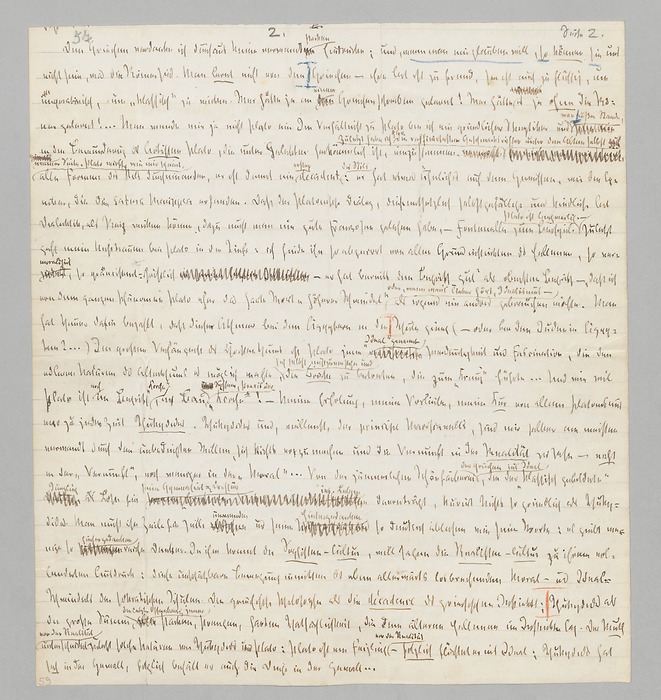 54 2.
starken
Den Griechen verdanke ich durchaus keine verwandt Eindrücke; und, wenn man mir glauben will, sie können uns
nicht sein, was die Römer sind. Man lernt nicht von den Griechen – ihre Art ist zu fremd, sie ist auch zu flüssig, um
imperativisch, um „klassisch" zu wirken. Wer hätte je an einem Griechen schreiben gelernt! Wer hätte es je ohne die Rö-
mer gelernt!... Man wende mir ja nicht Plato ein. Im Verhältniß zu Plato bin ich ein gründlicher Skeptiker und
war stets außer Stande,
in die Bewunderung des Artisten Plato, die unter Gelehrten herkömmlich ist, einzustimmen.
Zuletzt habe ich hier die raffinirtesten Geschmacksrichter unter den Alten selbst auf
meiner Seite. Plato wirft, wie mir scheint,
alle Formen des Stils durcheinander, er ist damit ein erster décadent des Stils: er hat etwas Ähnliches auf dem Gewissen, wie die Cy-
niker, die die satura Menippea erfanden. Daß der Platonische Dialog, diese entsetzlich selbstgefällige und kindliche Art
Dialektik, als Reiz wirken könne, dazu muß man nie gute Franzosen gelesen haben, – Fontenelle zum Beispiel.
Plato ist langweilig. –
Zuletzt
geht mein Mißtrauen bei Plato in die Tiefe: ich finde ihn so abgeirrt von allen Grundinstinkten der Hellenen, so ver-
moralisirt, so präexistent-christlich – er hat bereits den Begriff „gut" als obersten Begriff –, daß ich
von dem ganzen Phänomen Plato eher das harte Wort „höherer Schwindel"
oder, wenn man's lieber hört, Idealismus –
als irgend ein andres gebrauchen möchte. Man
hat theuer dafür bezahlt, daß dieser Athener bei den Ägyptern in die Schule gieng ( – oder bei den Juden in Ägyp-
ten?...) Im großen Verhängniß des Christenthums ist Plato jene „Ideal" genannte Zweideutigkeit und Fascination, die den
edleren Naturen des Alterthums es möglich machte, sich selbst mißzuverstehen und
die Brücke zu betreten, die zum „Kreuz" führte... Und wie viel
Plato ist noch im Begriff „Kirche", in Bau, System, Praxis der Kirche! – Meine Erholung, meine Vorliebe, meine Kur von allem Platonismus
war zu jeder Zeit Thukydides. Thukydides und, vielleicht, der principe Macchiavell's, sind mir selber am meisten
verwandt durch den unbedingten Willen, sich Nichts vorzumachen und die Vernunft in der Realität zu sehn – nicht
in der „Vernunft", noch weniger in der „Moral"... Von der jämmerlichen Schönfärberei,
der Griechen ins Ideal,
die der „klassisch gebildete"
Jüngling als Lohn für seine Gymnasial-Dressur ins Leben davonträgt, kurirt Nichts so gründlich als Thuky-
dides. Man muß ihn Zeile für Zeile umwenden und seine Hintergedanken so deutlich ablesen wie seine Worte: es giebt we-
nige so hintergedankenreiche Denker. In ihm kommt die Sophisten-Cultur, will sagen die Realisten-Cultur zu ihrem vol-
lendeten Ausdruck: diese unschätzbare Bewegung inmitten des eben allerwärts losbrechenden Moral- und Ideal-
Schwindels der sokratischen Schulen. Die griechische Philosophie als die décadence des griechischen Instinkts; Thukydides als
die große Summe, die letzte Offenbarung jener starken, strengen, harten Thatsächlichkeit, die dem älteren Hellenen im Instinkte lag. Der Muth
vor der Realität
unterscheidet zuletzt solche Naturen wie Thukydides und Plato: Plato ist ein Feigling vor der Realität – folglich flüchtet er ins Ideal; Thukydides hat
sich in der Gewalt, folglich behält er auch die Dinge in der Gewalt...
59